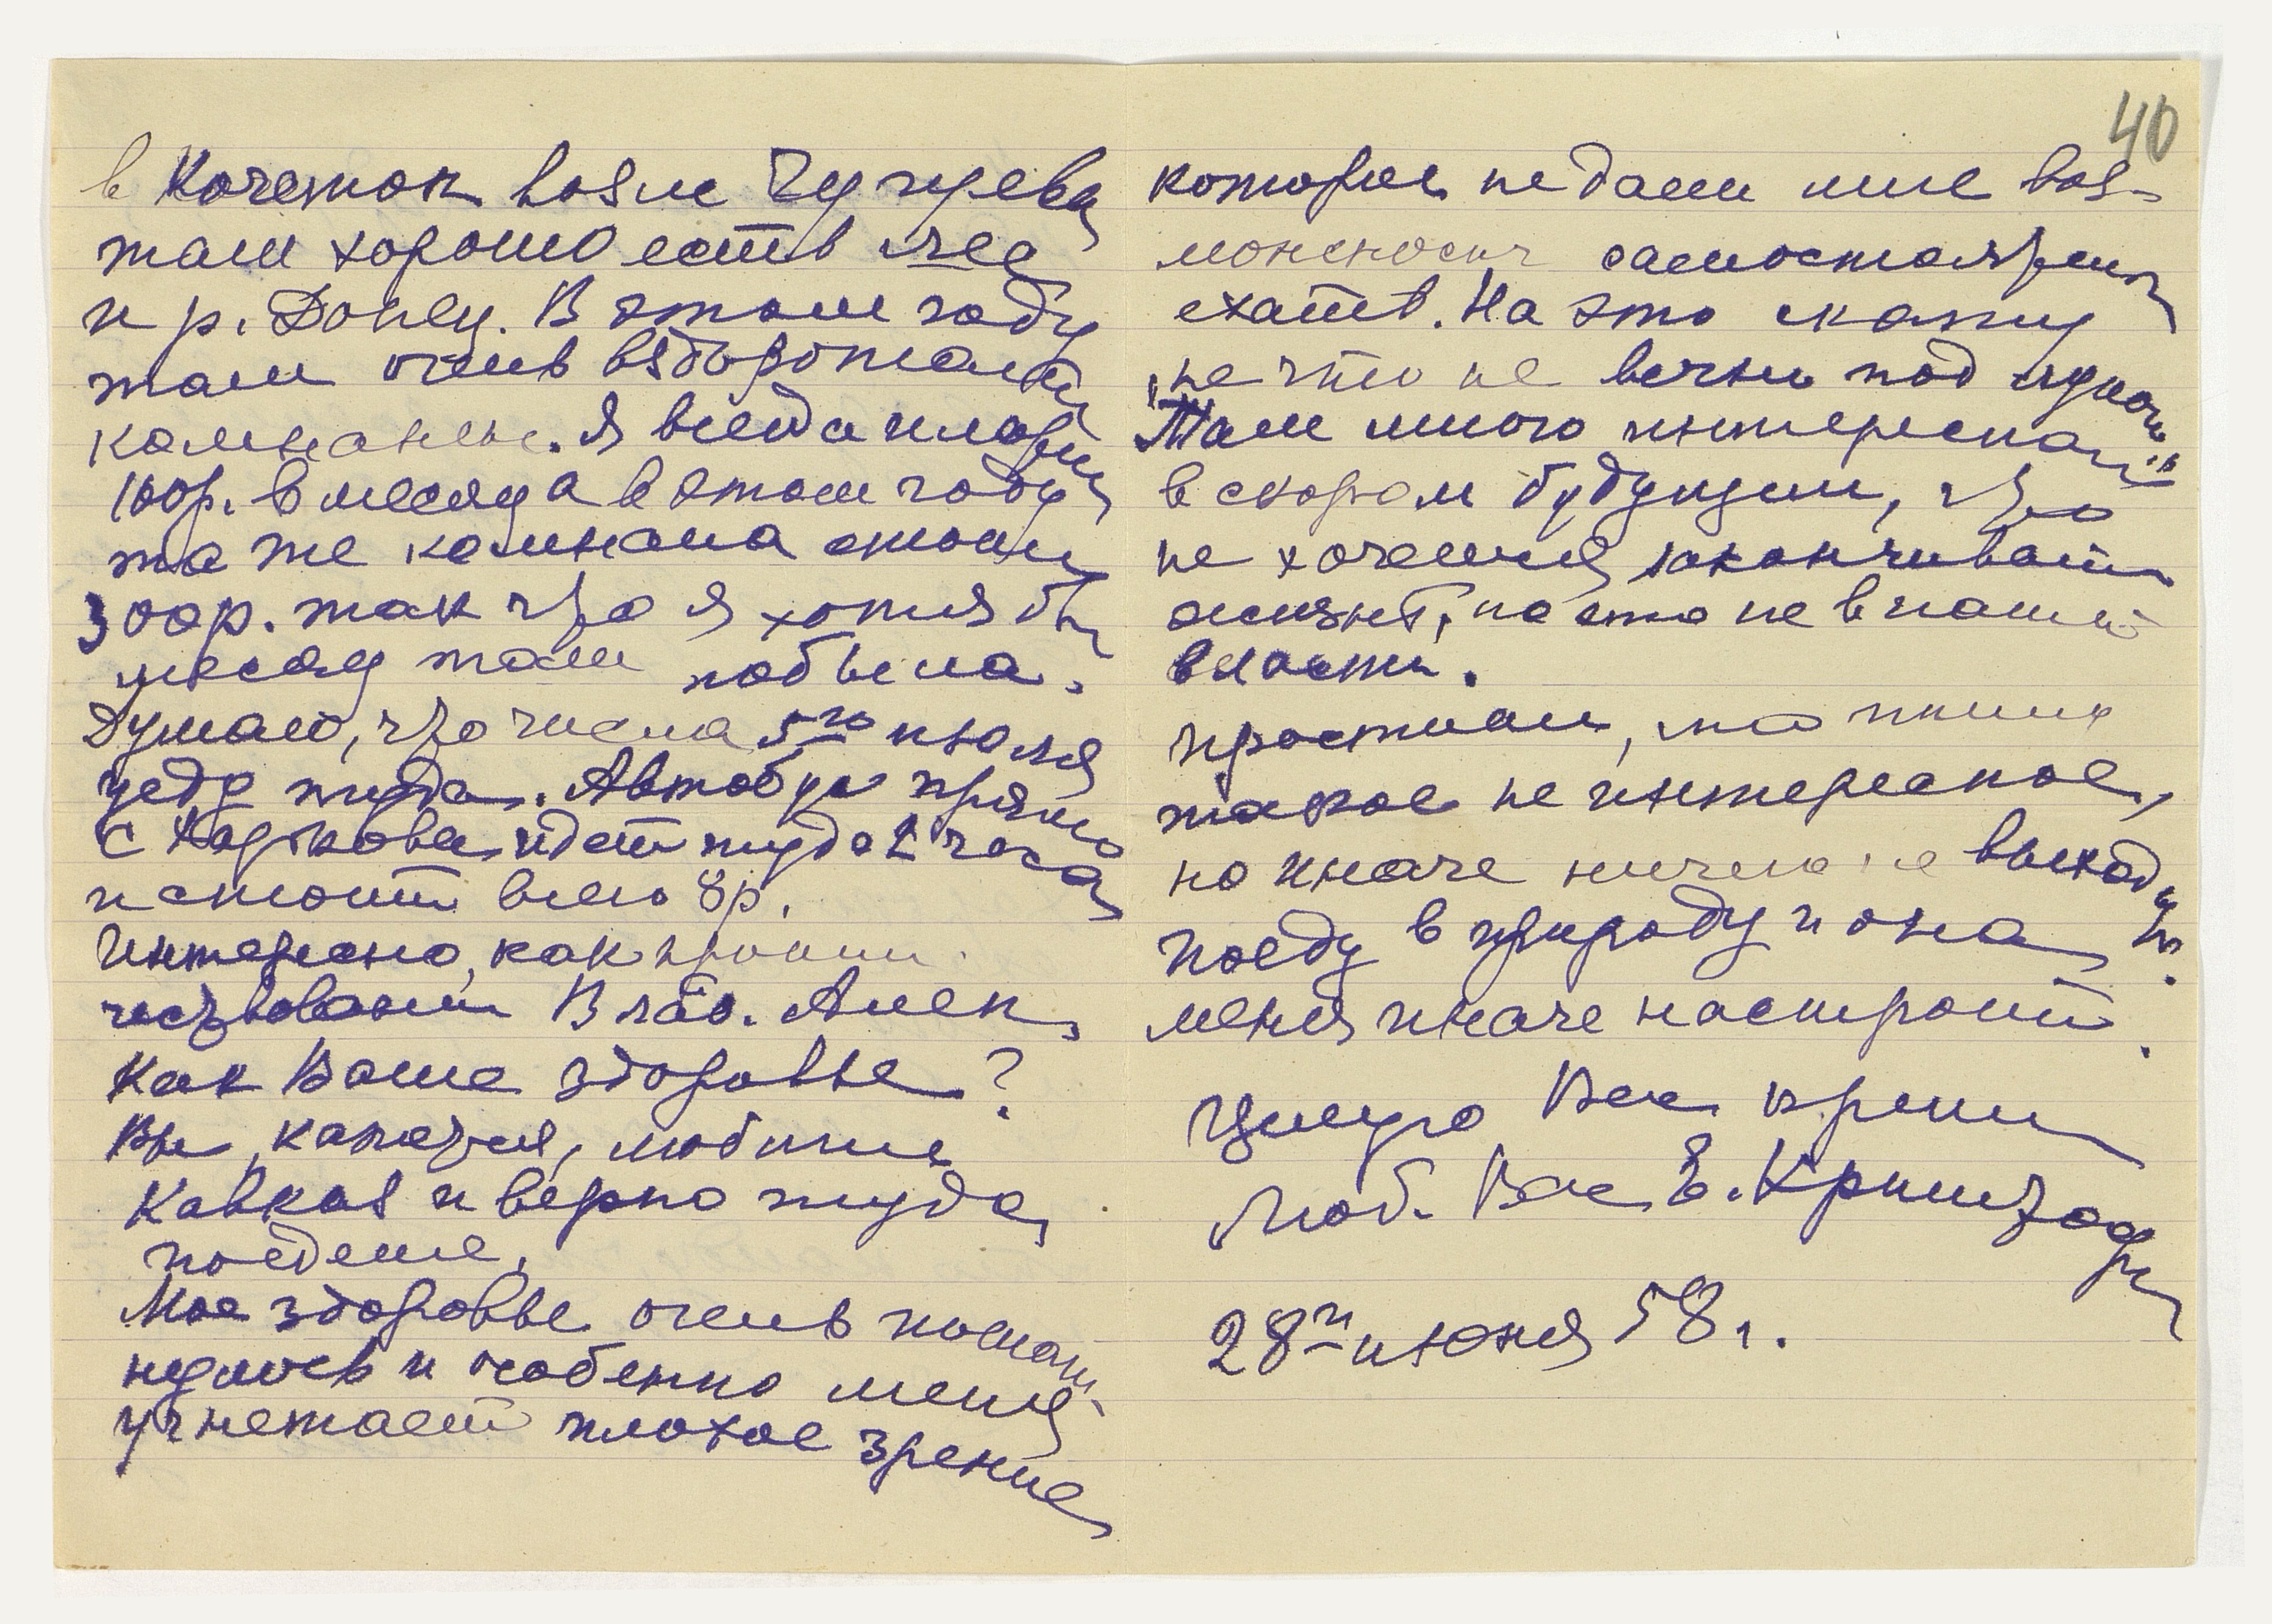 в Кочеток возле Чугуева
там хорошо есть лес
и р. Донец. В этом году
там очень вздорожали
комнаты. Я всегда платила
100р. в месяц а в этом году
та же комната стоит
300р. так что я хотя бы
месяц там побыла.
Думаю, что числа 5го июля
уеду туда. Автобус прямо
с Харькова идет туда 2 часа
и стоит всего 8р.
Интересно, как прошли
чествования Влад. Алек.
Как Ваше здоровье?
Вы, кажется, любите
Кавказ и верно туда
поедете.
Мое здоровье очень пошат-
нулось и особенно меня
угнетает плохое зрение
40
которое не дает мне воз-
можность самостоятельно
ехать. На это скажу
„не что не вечно под луною"
Там много интересного
в скором будущем, что
не хочется заканчивать
жизнь, но это не в нашей
власти.
простите, что пишу
такое не интересное,
но иначе ничего не выходит.
поеду в природу и она
меня иначе настроит.
Целую Вас крепко
Люб. Вас Е.
28го июня 58 г.